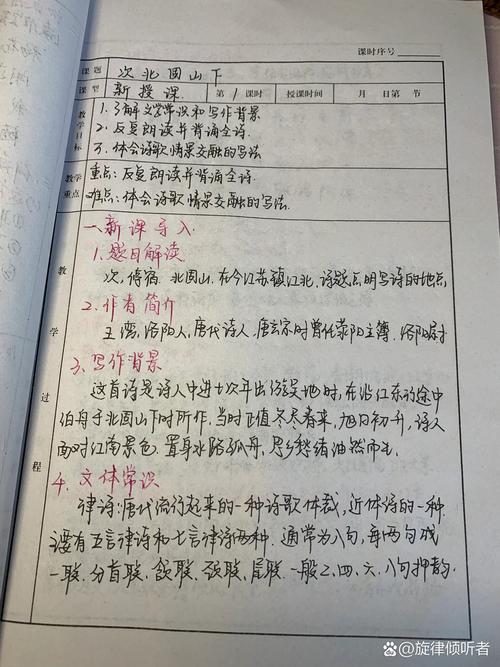 课时序号
课题 次北固山下
课型 新授课 第1课时 授课时间 月 日第 节
教学目标
1.了解文学常识和写作背景
2.反复朗读并背诵全诗.
3.体会诗歌情景交融的写法
教学重点
重点:反复朗读并背诵全诗.
难点:体会诗歌情景交融的写法.
教学过程
一、新课导入
1.题目解读
次,停宿.北固山,在今江苏镇江北,诗题点明写诗的地点
2.作者简介
王湾,洛阳人,唐代诗人,唐玄宗时曾任荥阳主簿、洛阳尉
3.写作背景
这首诗是诗人中进士次年出游吴地时,在沿江东行途中
泊舟于北固山下时所作,当时正值冬尽春来,旭日初升,诗人
面对江南景色,置身水路孤舟,思乡愁绪油然而生.
4.文体常识
律诗:唐代流行起来的一种诗歌体裁,近体诗的一种
主要有五言律诗和七言律诗两种.通常为八句,每两句成
一联,分首联、颔联、颈联、尾联.一般2、四、六、八句押韵.
@旋律倾听者